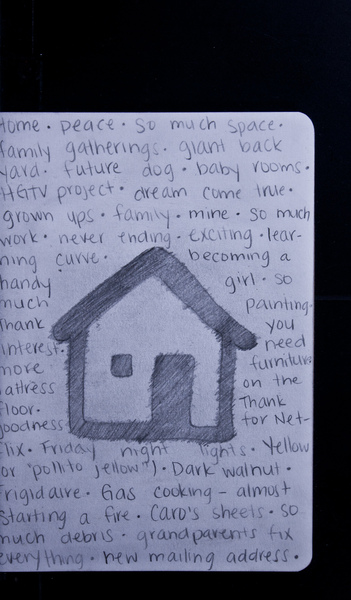 Home · peace · so much space ·
family gatherings · giant back
yard · future dog · baby rooms ·
HGTV project · dream come true ·
grown ups · family · mine · so much
work · never ending · exciting · lear-
ning curve · becoming a
handy girl · so
much painting ·
Thank you
interest · need
more furniture ·
mattress on the
floor · Thank
goodness for Net-
flix · Friday night lights · Yellow
(or "pollito jellow") · Dark walnut ·
frigidaire · Gas cooking - almost
starting a fire · Caro's sheets · so
much debris · grandparents fix
everything · new mailing address ·